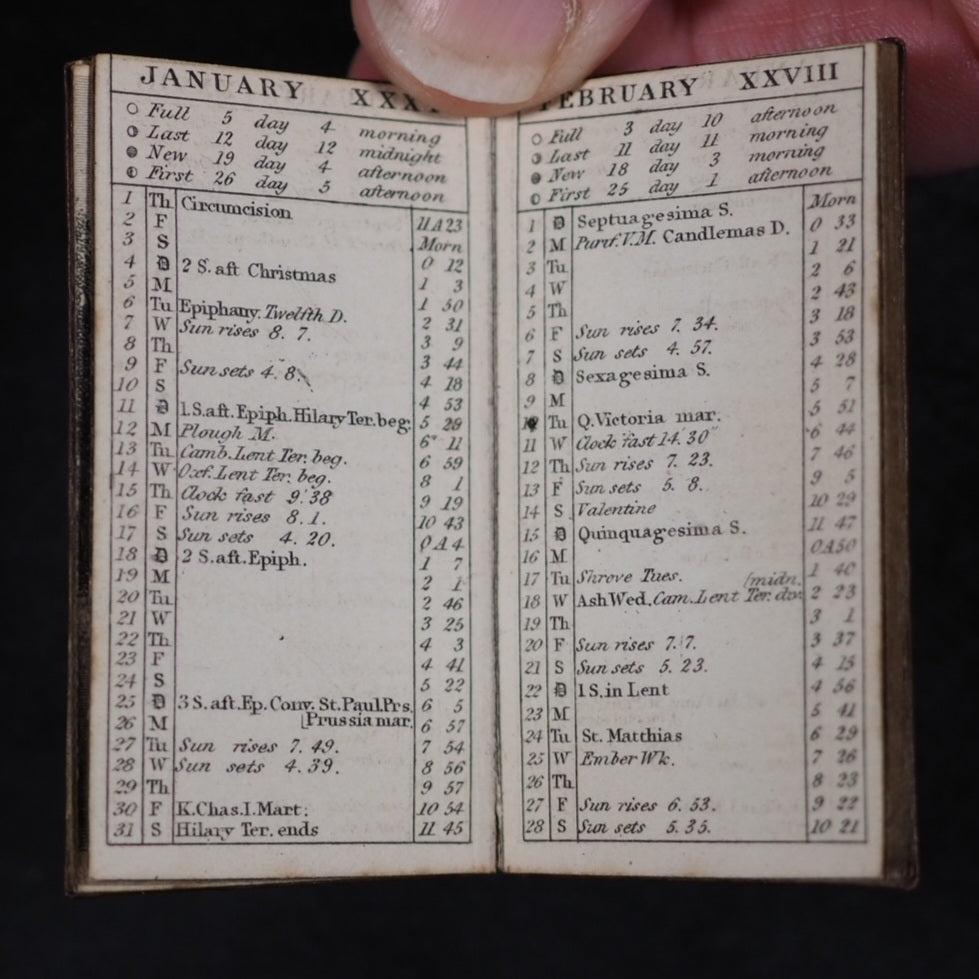 JANUARY XXX
○ Full 5 day 4 morning
◑ Last 12 day 12 midnight
● New 19 day 4 afternoon
◐ First 26 day 5 afternoon
1 Th Circumcision 11A23
2 F Morn
3 S 0 12
4 D 2 S. aft Christmas 1 3
5 M 1 50
6 Tu Epiphany. Twelfth D. 2 31
7 W Sun rises 8. 7. 3 9
8 Th 3 44
9 F Sun sets 4. 8. 4 18
10 S 4 53
11 D 1.S.aft.Epiph.Hilary Ter.beg. 5 29
12 M Plough M. 6 11
13 Tu Camb.Lent Ter. beg. 6 59
14 W Oxf.Lent Ter. beg. 8 1
15 Th Clock fast 9.'38 9 19
16 F Sun rises 8.1. 10 43
17 S Sun sets 4. 20. 0A4
18 D 2 S.aft.Epiph. 1 7
19 M 2 1
20 Tu 2 46
21 W 3 25
22 Th 4 3
23 F 4 41
24 S 5 22
25 D 3 S.aft.Ep. Conv. St.Paul.Prs. 6 5
26 M [Prussia mar. 6 57
27 Tu Sun rises 7. 49. 7 54
28 W Sun sets 4.39. 8 56
29 Th 9 57
30 F K.Chas.I.Mart: 10 54
31 S Hilary Ter. ends 11 45
FEBRUARY XXVIII
○ Full 3 day 10 afternoon
◑ Last 11 day 11 morning
● New 18 day 3 morning
◐ First 25 day 1 afternoon
Morn
1 D Septuagesima S. 0 33
2 M Purif.V.M. Candlemas D. 1 21
3 Tu 2 6
4 W 2 43
5 Th 3 18
6 F Sun rises 7. 34. 3 53
7 S Sun sets 4. 57. 4 28
8 D Sexagesima S. 5 7
9 M 5 51
10 Tu Q.Victoria mar. 6 44
11 W Clock fast 14. 30" 7 46
12 Th Sun rises 7. 23. 9 5
13 F Sun sets 5. 8. 10 29
14 S Valentine 11 47
15 D Quinquagesima S. 0A50
16 M 1 40
17 Tu Shrove Tues. [midn. 2 23
18 W Ash Wed. Cam.Lent Ter. div. 3 1
19 Th 3 37
20 F Sun rises 7. 7. 4 15
21 S Sun sets 5. 23. 4 56
22 D 1 S.in Lent 5 41
23 M 6 29
24 Tu St. Matthias 7 26
25 W Ember Wk. 8 23
26 Th 9 22
27 F Sun rises 6. 53. 10 21
28 S Sun sets 5. 35.